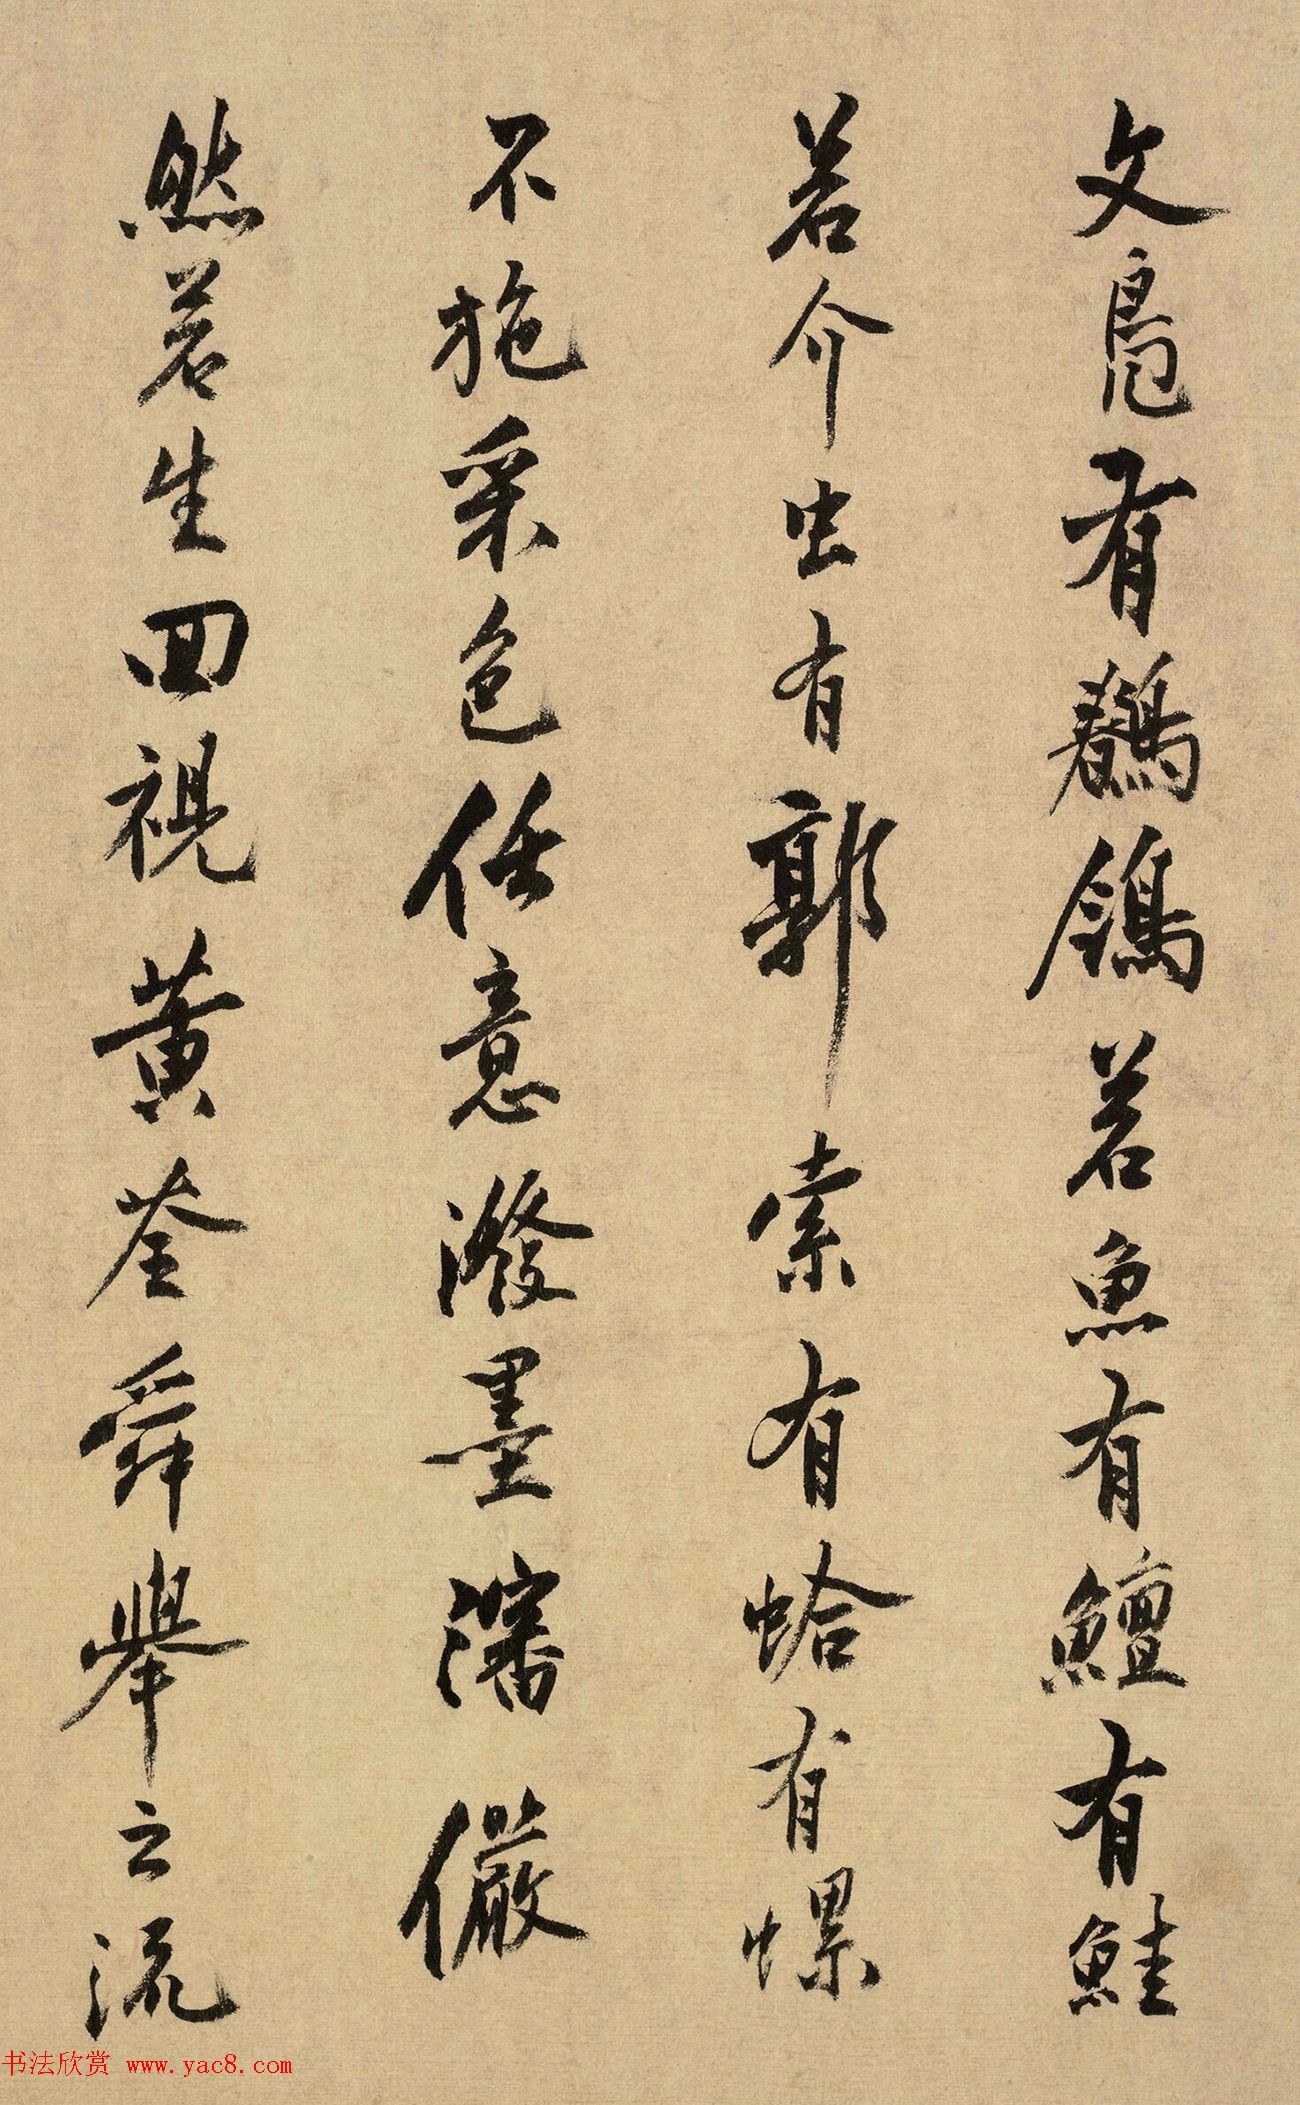 文鳧有鶺鴒若魚有鱣有鮭
若介虫有郭索有蛤有螺
不施采色任意潑墨瀋儼
然若生回視黄荃舜舉之流
书法欣赏 www.yac8.com